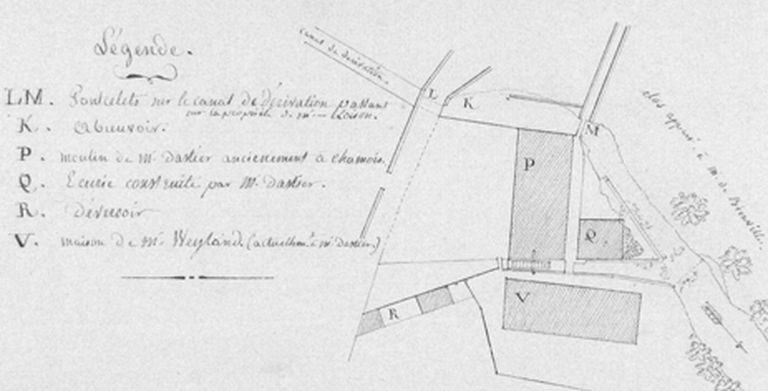 Légende.
LM. Pontcelets sur le canal de dérivation passant
sur la propriété de Mr Loison.
K. abreuvoir.
P. moulin de Mr Dastier anciennement à chamois.
Q. Ecurie construite par Mr Dastier.
R. déversoir
V. maison de Mr Weyland (actuellemt à Mr Dastier.)
canal de dérivation.
L
K
M
P
Q
R
V
clos appart à M. de